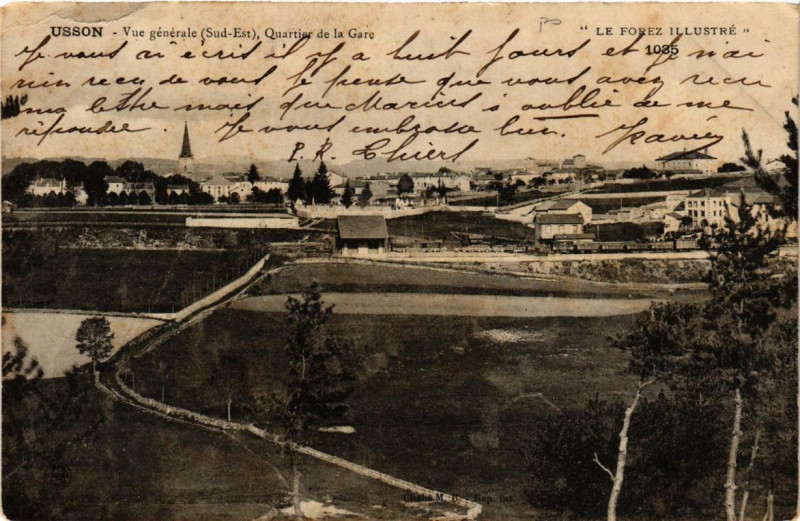 USSON - Vue générale (Sud-Est), Quartier de la Gare
" LE FOREZ ILLUSTRÉ "
1035
Je vous ai écris il y a huit jours et je n'ai
rien reçu de vous je pense que vous avez reçu
ma lettre mais que Marius s oublie de me
répondre. Je vous embrasse bien.
P. R. Thiers
Cliché M. B. Rep. int.